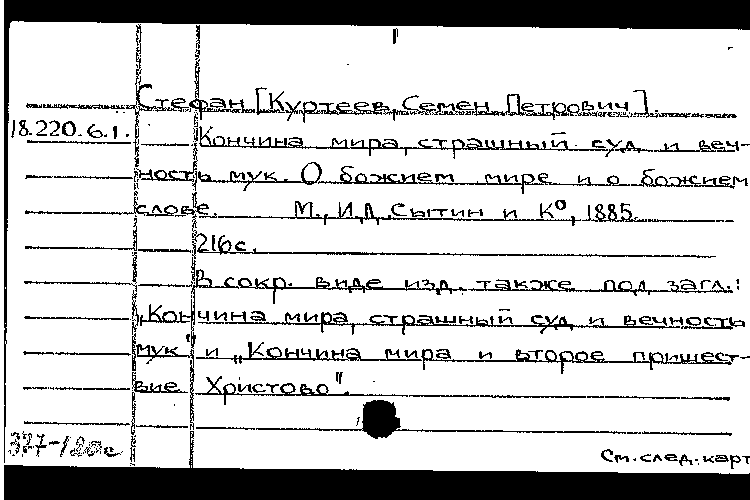 Стефан [Куртеев, Семен Петрович].
18.220.6.1. Кончина мира, страшный суд и веч-
ность мук. О божием мире и о божием
слове. М., И.Д. Сытин и К°, 1885.
216с.
В сокр. виде изд. также под загл.:
„Кончина мира, страшный суд и вечность
мук" и „Кончина мира и второе пришест-
вие Христово".
См. след. карт